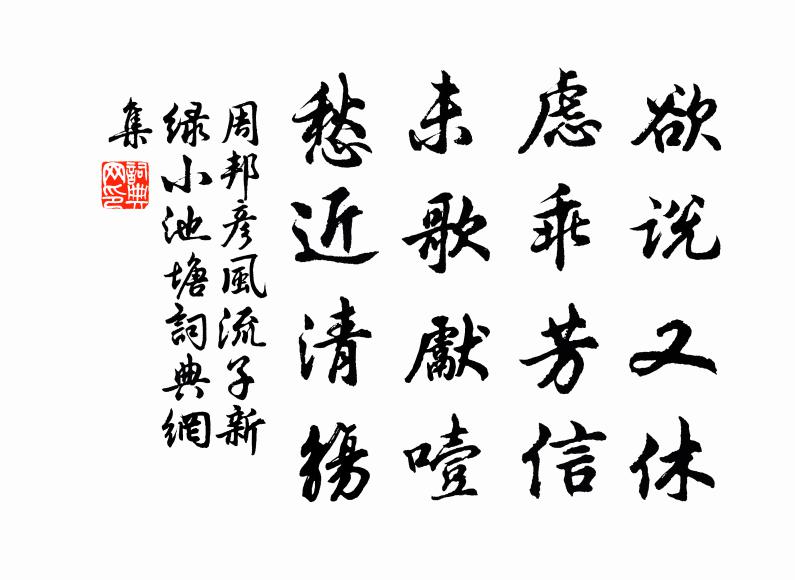 欲说又休
虑乖芳信
未歌獻噎
愁近清觴
周邦彦風流子新
绿小池塘詞典網
集
詞典
网印